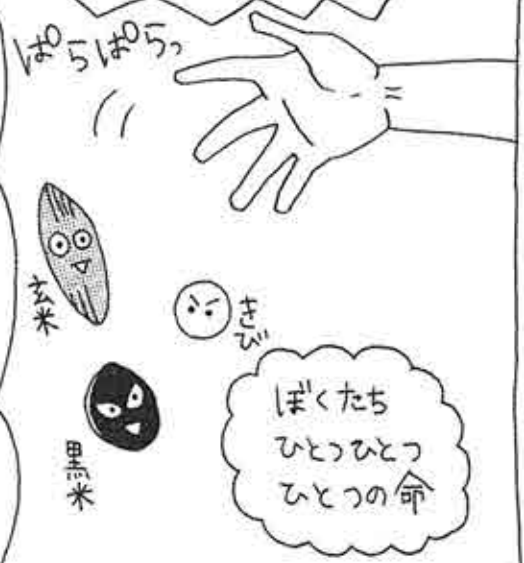 ぱらぱらっ
玄米
きび
黒米
ぼくたち
ひとつひとつ
ひとつの命